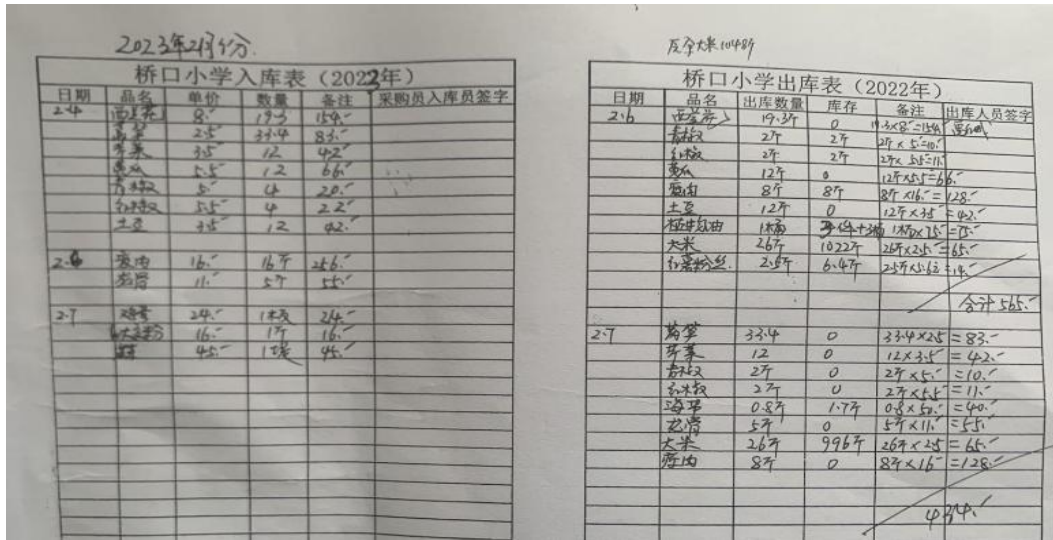 2023年2月份.
桥口小学入库表（2023年）
日期 品名 单价 数量 备注 采购员入库员签字
2.4 西兰花 8.- 19.3 154.-
莴笋 2.5 33.4 83.-
芹菜 3.5 12 42.-
黄瓜 5.5- 12 66.-
青椒 5.- 4 20.-
红椒 5.5- 4 22.-
土豆 3.5 12 42.-
2.6 瘦肉 16.- 16斤 256.-
龙骨 11.- 5斤 55.-
2.7 24.- 1板 24.-
16.- 1斤 16.-
45.- 45.-
大米1048斤
桥口小学出库表（2022年）
日期 品名 出库数量 库存 备注 出库人员签字
2.6 西兰花 19.3斤 0 19.3×8.-=154.-
青椒 2斤 2斤 2斤×5.-=10.-
红椒 2斤 2斤 2斤×5.5=11.-
黄瓜 12斤 0 12斤×5.5=66.-
瘦肉 8斤 8斤 8斤×16.-=128.-
土豆 12斤 0 12斤×3.5=42.-
植物油 1桶 1桶×75.-=75.-
大米 26斤 1022斤 26斤×2.5.-=65.-
红薯粉丝 2.5斤 6.4斤 2.5斤×5.62=14.-
合计565.-
2.7 莴笋 33.4 0 33.4×2.5=83.-
芹菜 12 0 12×3.5-=42.-
青椒 2斤 0 2斤×5.-=10.-
红椒 2斤 0 2斤×5.5=11.-
海带 0.8斤 1.7斤 0.8×50.-=40.-
龙骨 5斤 0 5斤×11.-=55.-
大米 26斤 996斤 26斤×2.5=65.-
瘦肉 8斤 0 8斤×16-=128.-
434.-